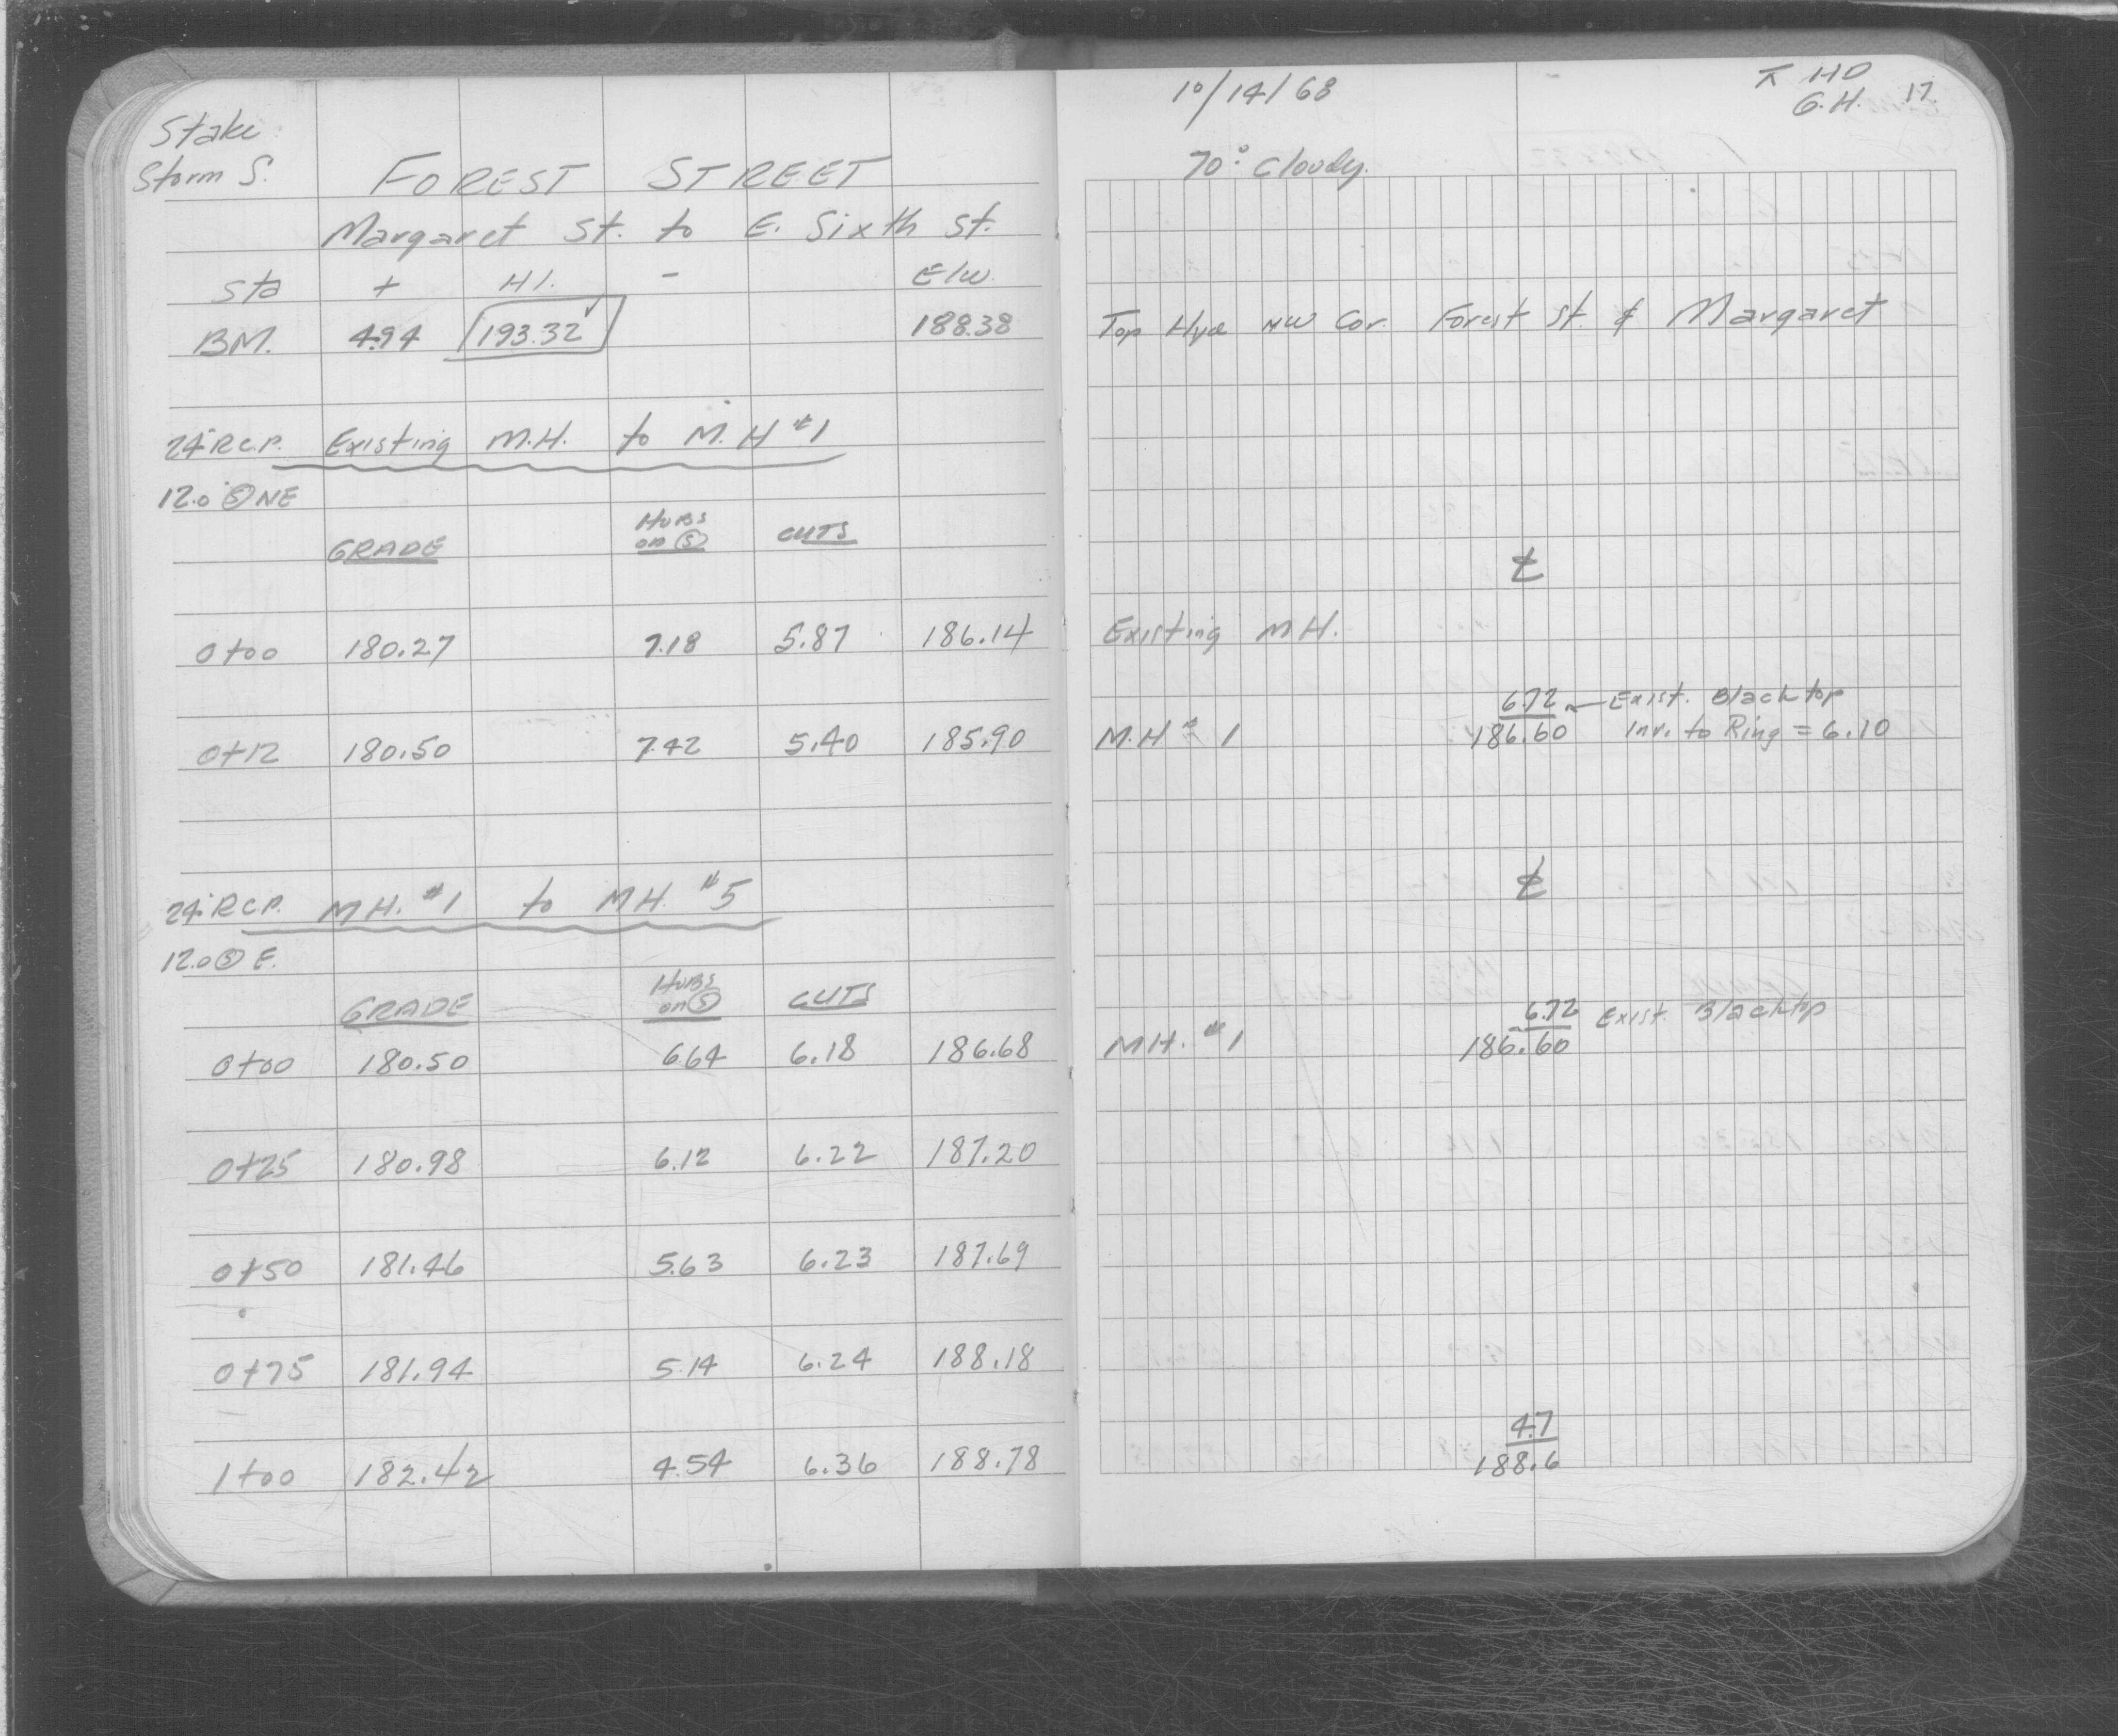 Stake
Storm S.
FOREST STREET
Margaret St. to E. Sixth St.
Sta + H.I. - Elev.
BM. 4.94 193.32 188.38
24" R.C.P. Existing M.H. to M.H #1
12.0 Ⓢ NE
GRADE HUBS on Ⓢ CUTS
0+00 180.27 7.18 5.87 186.14
0+12 180.50 7.42 5.40 185.90
24" R.C.P. MH. #1 to MH. #5
12.0 Ⓢ E.
GRADE HUBS on Ⓢ CUTS
0+00 180.50 6.64 6.18 186.68
0+25 180.98 6.12 6.22 187.20
0+50 181.46 5.63 6.23 187.69
0+75 181.94 5.14 6.24 188.18
1+00 182.42 4.54 6.36 188.78
10/14/68
⊼ HD
G.H. 17
70° Cloudy.
Top Hyd NW Cor. Forest St. & Margaret
℄
Existing MH.
6.72 Exist. Blacktop
M.H #1 186.60 Inv. to Ring = 6.10
℄
6.72 Exist. Blacktop
MH. #1 186.60
4.7
188.6